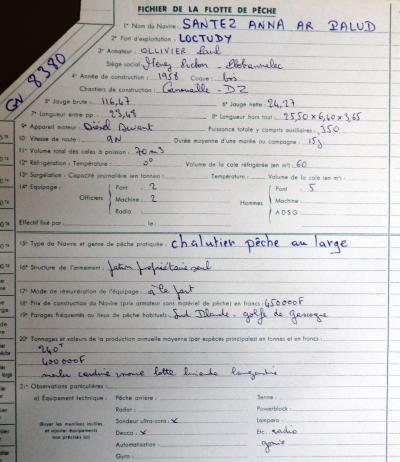 FICHIER DE LA FLOTTE DE PÊCHE
GV 8380
1° Nom du Navire : SANTEZ ANNA AR PALUD
2° Port d'exploitation : LOCTUDY
3° Armateur : OLLIVIER Paul
Siège social :
4° Année de construction : 1958 Coque : bois
Chantiers de construction : - DZ
5° Jauge brute : 116,47 6° Jauge nette : 24,27
7° Longueur entre pp : 23,48 8° Longueur hors tout : 25,50 x 6,40 x 3,65
9° Appareil moteur : Diesel Puissance totale y compris auxiliaires : 350
10° Vitesse de route : 9N Durée moyenne d'une marée ou campagne : 15j
11° Volume total des cales à poisson : 70 m3
12° Réfrigération - Température : 0° Volume de la cale réfrigérée (en m³) : 60
13° Surgélation : Capacité journalière (en tonnes) : Température : Volume de la cale (en m³) :
14° Equipage : Officiers Pont : 2 Hommes Pont : 5
Machine : 2 Machine :
Radio : A D S G :
Effectif fixé par : le :
15° Type de Navire et genre de pêche pratiquée : chalutier pêche au large
16° Structure de l'armement : patron propriétaire seul
17° Mode de rémunération de l'équipage : à la part
18° Prix de construction du Navire (prix armateur sans matériel de pêche) en francs : 450000F
19° Parages fréquentés ou lieux de pêche habituels : Sud Irlande - golfe de Gascogne
20° Tonnages et valeurs de la production annuelle moyenne (par espèces principales) en tonnes et en francs :
240T
400000F
merlu cardine morue lotte limande langoustine
21° Observations particulières :
a) Équipement technique : Pêche arrière : Senne :
Radar : Powerblock :
(Rayer les mentions inutiles et ajouter équipements non précisés ici) Sondeur ultra-sons : x Lampero :
Decca : x Etc. radio
Automatisation : gonio
Gyro :